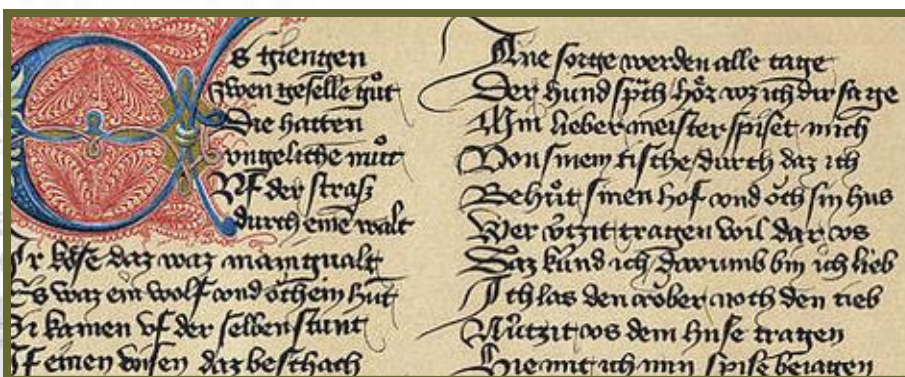 Es giengen
zwen geselle gůt
Die hatten
vngeliche můt
Vf der straſz
durch eine walt
Ir köse daz waz manigualt
Es waz ein wolf vnd öch ein hunt
Si kamen vf der selben stunt
Vf einen wisen daz beschach
Ane sorge werden alle tage
Der hund sprch hör waz ich dir sage
Min lieber meister spiset mich
Von sinem tische durch daz ich
Behůt sinen hof vnd öch sin hus
Wer ützit tragen wil dar vs
Daz kund ich darumb bin ich lieb
Ich las den röber noch den tieb
Nützit vs dem huse tragen
Hie mit ich min spise beiagen